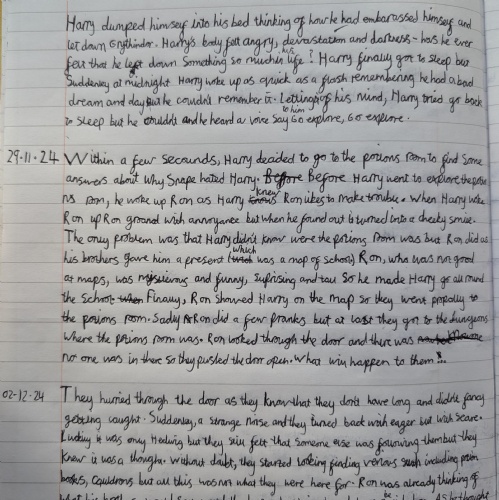 Harry dumped himself into his bed thinking of how he had embarassed himself and
let down Gryffindor. Harry's body felt angry, devastation and darkness - has he ever
felt that he left down something so much in his life? Harry finally got to sleep but
Suddenley at midnight Harry woke up as quick as a flash remembering he had a bad
dream and day but he couldn't remember it. Letting of his mind, Harry tried go back
to sleep but he couldn't and he heard a voice say to him Go explore, Go explore.
29.11.24 Within a few secounds, Harry decided to go to the potions room to find some
answers about why Snape hated Harry. Before Before Harry went to explore the potio
ns room, he woke up Ron as Harry knows knew Ron likes to make trouble. When Harry woke
Ron up Ron ground with annoyance but when he found out it turned into a cheeky smile.
The only problem was that Harry didn't know were the potions room was but Ron did as
his brothers gave him a present which was a map of school. Ron, who was not good
at maps, was mysterious and funny, suprising and tall So he made Harry go all round
the School. Finally, Ron showed Harry on the map so they went propally to
the potions room. Sadly Ron did a few pranks but at last they got to the dungeons
where the potions room was. Ron looked through the door and there was
no one was in there so they pushed the door open. What will happen to them!..
02-12-24 They hurried through the door as they know that they don't have long and didn't fancy
getting caught. Suddenley, a strange noise and they turned back with eager but with scare.
Luckily it was only Hedwig but they still felt that someone else was following them but they
knew it was a thought. Without doubt, they started looking finding verious such including potion
books, cauldrons but all this was not what they were here for. Ron was already thinking of
what his